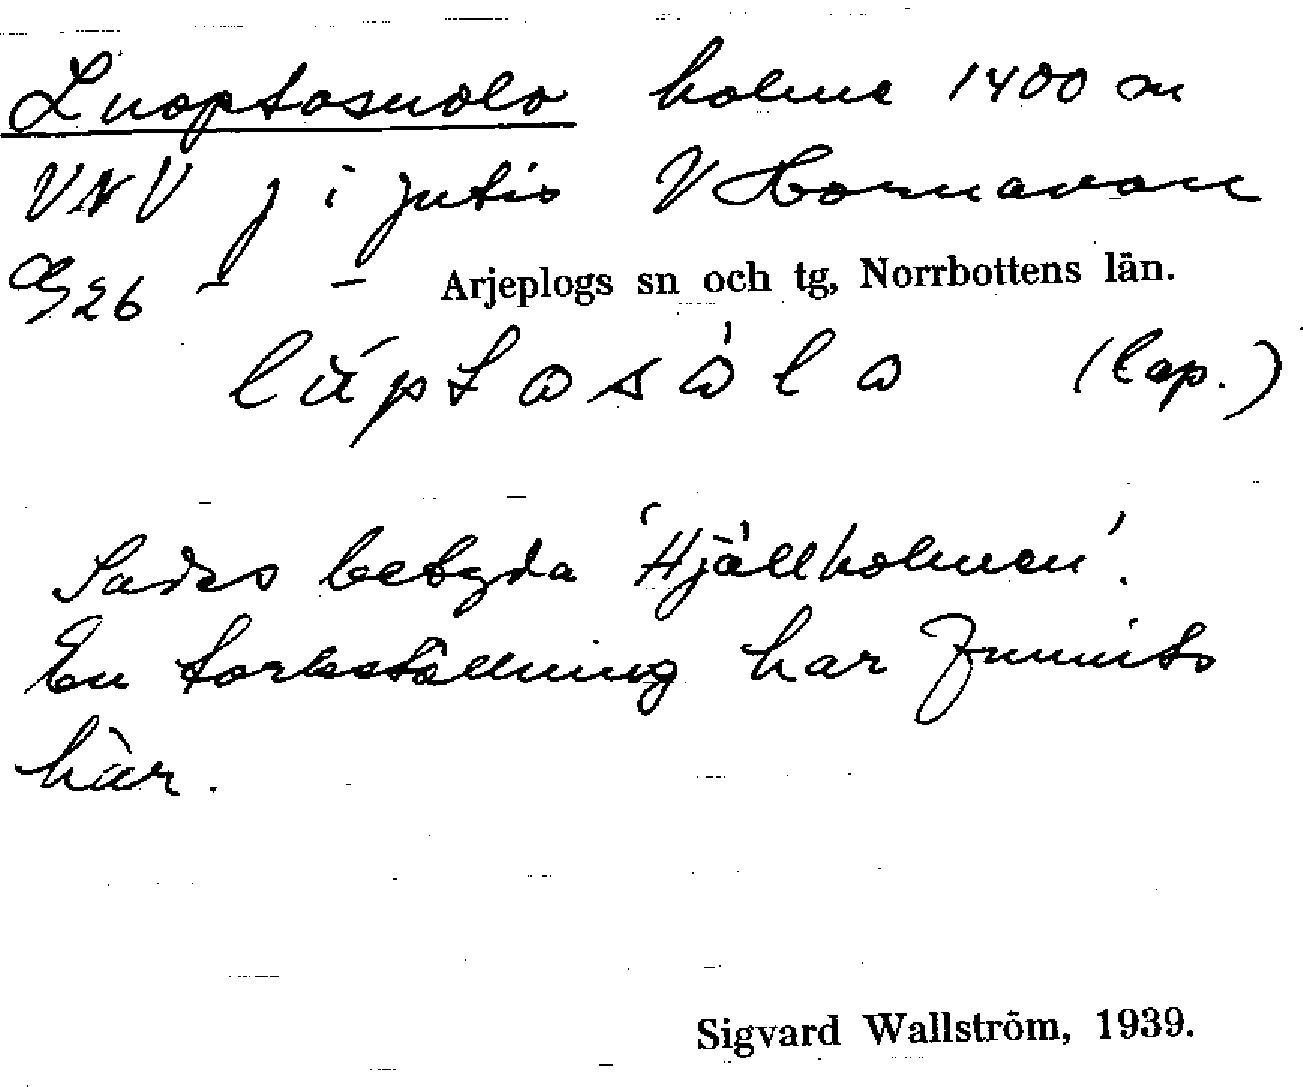 Luoptasuolo holme 1400 m
VNV j i jutis V Hornavan
Gg 26 – – Arjeplogs sn och tg, Norrbottens län.
lúptasåla (lap.)
Sades betyda 'Hjällholmen'.
En torkställning har funnits
här.
Sigvard Wallström, 1939.